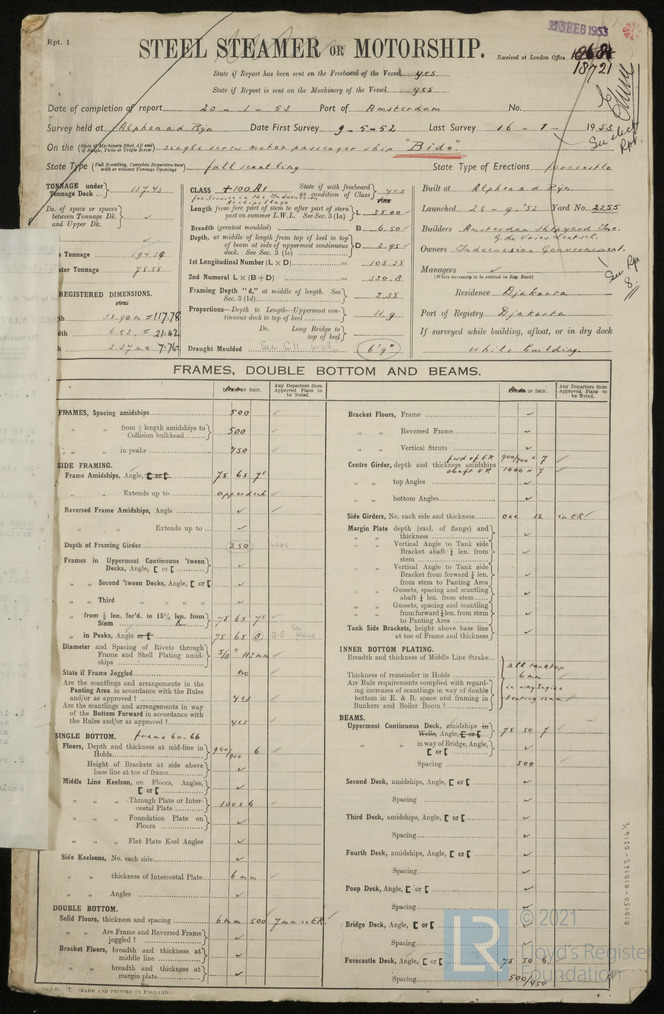 Rpt. 1
23 FEB 1953
STEEL STEAMER OR MOTORSHIP.
Received at London Office
18721
State if Report has been sent on the Freeboard of the Vessel yes
State if Report is sent on the Machinery of the Vessel yes
Date of completion of report 20-1-53 Port of Amsterdam No.
Survey held at Alphen a d Rijn Date First Survey 9-5-52 Last Survey 16-1-1953
On the (State if Machinery fitted Aft and if Single, Twin or Triple Screw) single screw motor passenger ship "Bido"
State Type (Full Scantling, Complete Superstructure with or without Tonnage Openings) full scantling State Type of Erections forecastle
TONNAGE under Tonnage Deck 157.45
Do. of space or spaces between Tonnage Dk. and Upper Dk.
Tonnage 194.39
Tonnage 75.55
REGISTERED DIMENSIONS.
35.90 m = 117.78
6.53 = 21.42
2.37 m = 7.76
CLASS +100A1 State if with freeboard as condition of Class yes
Length from fore part of stem to after part of stern post on summer L.W.L. See Sec. 3 (1a) L 35.00
Breadth (greatest moulded) B 6.50
Depth, at middle of length from top of keel to top of beam at side of uppermost continuous deck. See Sec. 3 (1c) D 2.95
1st Longitudinal Number (L × D) = 103.25
2nd Numeral L × (B + D) = 330.8
Framing Depth "d," at middle of length. See Sec. 3 (1d) 2.35
Proportions—Depth to Length—Uppermost continuous deck to top of keel 11.9
Do. Long Bridge to top of keel
Draught Moulded 6'9"
Built at Alphen a d Rijn
Launched 25-9-'52 Yard No. 2255
Builders Amsterdam Shipyard Inc.
Owners Indonesian Government.
Managers
(Where necessary to be entered in Reg. Book)
Residence Djakarta
Port of Registry Djakarta
If surveyed while building, afloat, or in dry dock
while building.
See Rpt 8.
FRAMES, DOUBLE BOTTOM AND BEAMS.
IN SHIP. Any Departure from Approved Plans to be Noted. IN SHIP. Any Departure from Approved Plans to be Noted.
FRAMES, Spacing amidships 500
" " from ⅕ length amidships to Collision bulkhead 500
" " in peaks 450
SIDE FRAMING.
Frame Amidships, Angle, [ or [ 75 65 7
" " Extends up to upperdeck
Reversed Frame Amidships, Angle
" " Extends up to
Depth of Framing Girder 250
Frames in Uppermost Continuous 'tween Decks, Angle, [ or [
" " Second 'tween Decks, Angle, [ or [
" " Third " "
" " from ⅕ len. for'd. to 15% len. from Stem 75 65 7
" " in Peaks, Angle or [ 75 65 8
Diameter and Spacing of Rivets through Frame and Shell Plating amidships 5/8" 112 mm
State if Frame Joggled no
Are the scantlings and arrangements in the Panting Area in accordance with the Rules and/or as approved? yes
Are the scantlings and arrangements in way of the Bottom Forward in accordance with the Rules and/or as approved? yes
SINGLE BOTTOM. frame 60-66
Floors, Depth and thickness at mid-line in Holds 940/900 6
Height of Brackets at side above base line at toe of frame
Middle Line Keelson, on Floors, Angles, [ or [
" " Through Plate or Intercostal Plate 100 x 6
" " Foundation Plate on Floors
" " Flat Plate Keel Angles
Side Keelsons, No. each side
" " thickness of Intercostal Plate 6 mm
" " Angles
DOUBLE BOTTOM.
Solid Floors, thickness and spacing 6 mm 500 7 mm in ER.
" " Are Frame and Reversed Frame joggled?
Bracket Floors, breadth and thickness at middle line
" " breadth and thickness at margin plate
Bracket Floors, Frame
" " Reversed Frame
" " Vertical Struts
Centre Girder, depth and thickness amidships fwd of ER 900/700 x 7
abaft ER 1000 x 7
" " top Angles
" " bottom Angles
Side Girders, No. each side and thickness one 12 in ER
Margin Plate depth (excl. of flange) and thickness
" " Vertical Angle to Tank side Bracket abaft ¼ len. from stem
" " Vertical Angle to Tank side Bracket from forward ¼ len. from stem to Panting Area
" " Gussets, spacing and scantling abaft ¼ len. from stem
" " Gussets, spacing and scantling from forward ¼ len. from stem to Panting Area
Tank Side Brackets, height above base line at toe of Frame and thickness
INNER BOTTOM PLATING.
Breadth and thickness of Middle Line Strake
Thickness of remainder in Holds
all tanktop 6 mm
Are Rule requirements complied with regarding increases of scantlings in way of double bottom in E. & B. space and framing in Bunkers and Boiler Room?
BEAMS.
Uppermost Continuous Deck, amidships in Wells, Angle, [ or [ 75 50 7
" " in way of Bridge, Angle, [ or [
Spacing 500
Second Deck, amidships, Angle, [ or [
Spacing
Third Deck, amidships, Angle, [ or [
Spacing
Fourth Deck, amidships, Angle, [ or [
Spacing
Poop Deck, Angle, [ or [
Spacing
Bridge Deck, Angle, [ or [
Spacing
Forecastle Deck, Angle, [ or [ 75 50 6
Spacing 500/450
(MADE AND PRINTED IN ENGLAND.)
LR © 2021
Lloyd's Register
Foundation